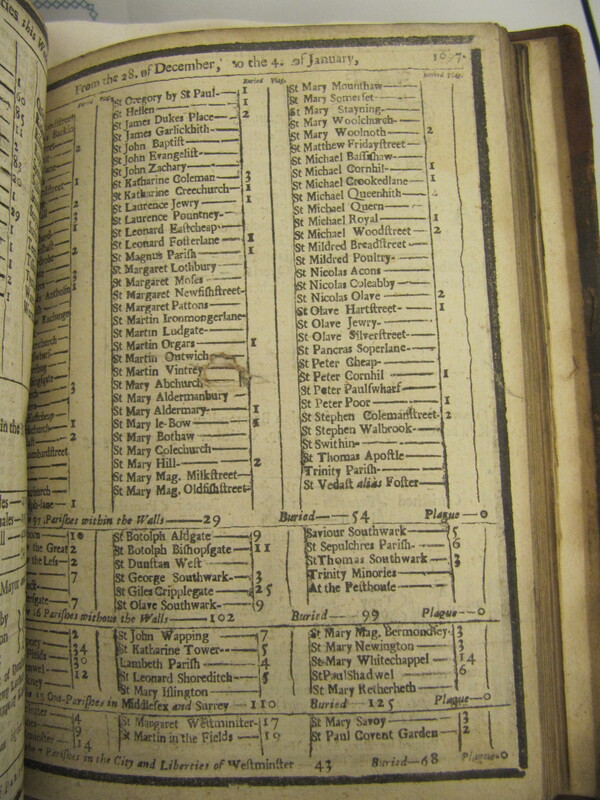 From the 28. of December, to the 4. of January, 1697.
Buried Plag.
Buried Plag.
St Gregory by St Paul- 1
St Hellen 1
St James Dukes Place 2
St James Garlickhith
St John Baptist
St John Evangelist
St John Zachary
St Katharine Coleman 3
St Katharine Creechurch 1
St Laurence Jewry 1
St Laurence Pountney-
St Leonard Eastcheap
St Leonard Fosterlane 1
St Magnus Parish 1
St Margaret Lothbury
St Margaret Moses
St Margaret Newfishstreet
St Margaret Pattons
St Martin Ironmongerlane
St Martin Ludgate-
St Martin Orgars 1
St Martin Outwich
St Martin Vintrey
St Mary Abchurch
St Mary Aldermanbury
St Mary Aldermary- 1
St Mary le-Bow
St Mary Bothaw
St Mary Colechurch
St Mary Hill- 2
St Mary Mag. Milkstreet
St Mary Mag. Oldfishstreet
St Mary Mounthaw
St Mary Somerset
St Mary Stayning-
St Mary Woolchurch-
St Mary Woolnoth 2
St Matthew Fridaystreet
St Michael Bassishaw
St Michael Cornhil- 1
St Michael Crookedlane 1
St Michael Queenhith
St Michael Quern
St Michael Royal 1
St Michael Woodstreet 2
St Mildred Breadstreet
St Mildred Poultry-
St Nicolas Acons
St Nicolas Coleabby
St Nicolas Olave 2
St Olave Hartstreet- 1
St Olave Jewry-
St Olave Silverstreet-
St Pancras Soperlane-
St Peter Cheap-
St Peter Cornhil 1
St Peter Paulswharf
St Peter Poor 1
St Stephen Colemanstreet- 2
St Stephen Walbrook-
St Swithin-
St Thomas Apostle
Trinity Parish-
St Vedast alias Foster
97 Parishes within the Walls 29 Buried 54 Plague 0
St Botolph Aldgate 9
St Botolph Bishopsgate 11
St Dunstan West
St George Southwark- 3
St Giles Cripplegate 25
St Olave Southwark- 9
Saviour Southwark 5
St Sepulchres Parish- 6
St Thomas Southwark 3
Trinity Minories
At the Pesthouse
16 Parishes without the Walls 102 Buried 99 Plague 0
St John Wapping 7
St Katharine Tower 5
Lambeth Parish 4
St Leonard Shoreditch 5
St Mary Islington
St Mary Mag. Bermondsey- 3
St Mary Newington 3
St Mary Whitechappel 14
St Paul Shadwel 6
St Mary Retherheth
Out-Parishes in Middlesex and Surrey 110 Buried 125 Plague 0
St Margaret Westminster- 17
St Martin in the Fields 19
St Mary Savoy 3
St Paul Covent Garden 2
Parishes in the City and Liberties of Westminster 43 Buried 68 Plague 0